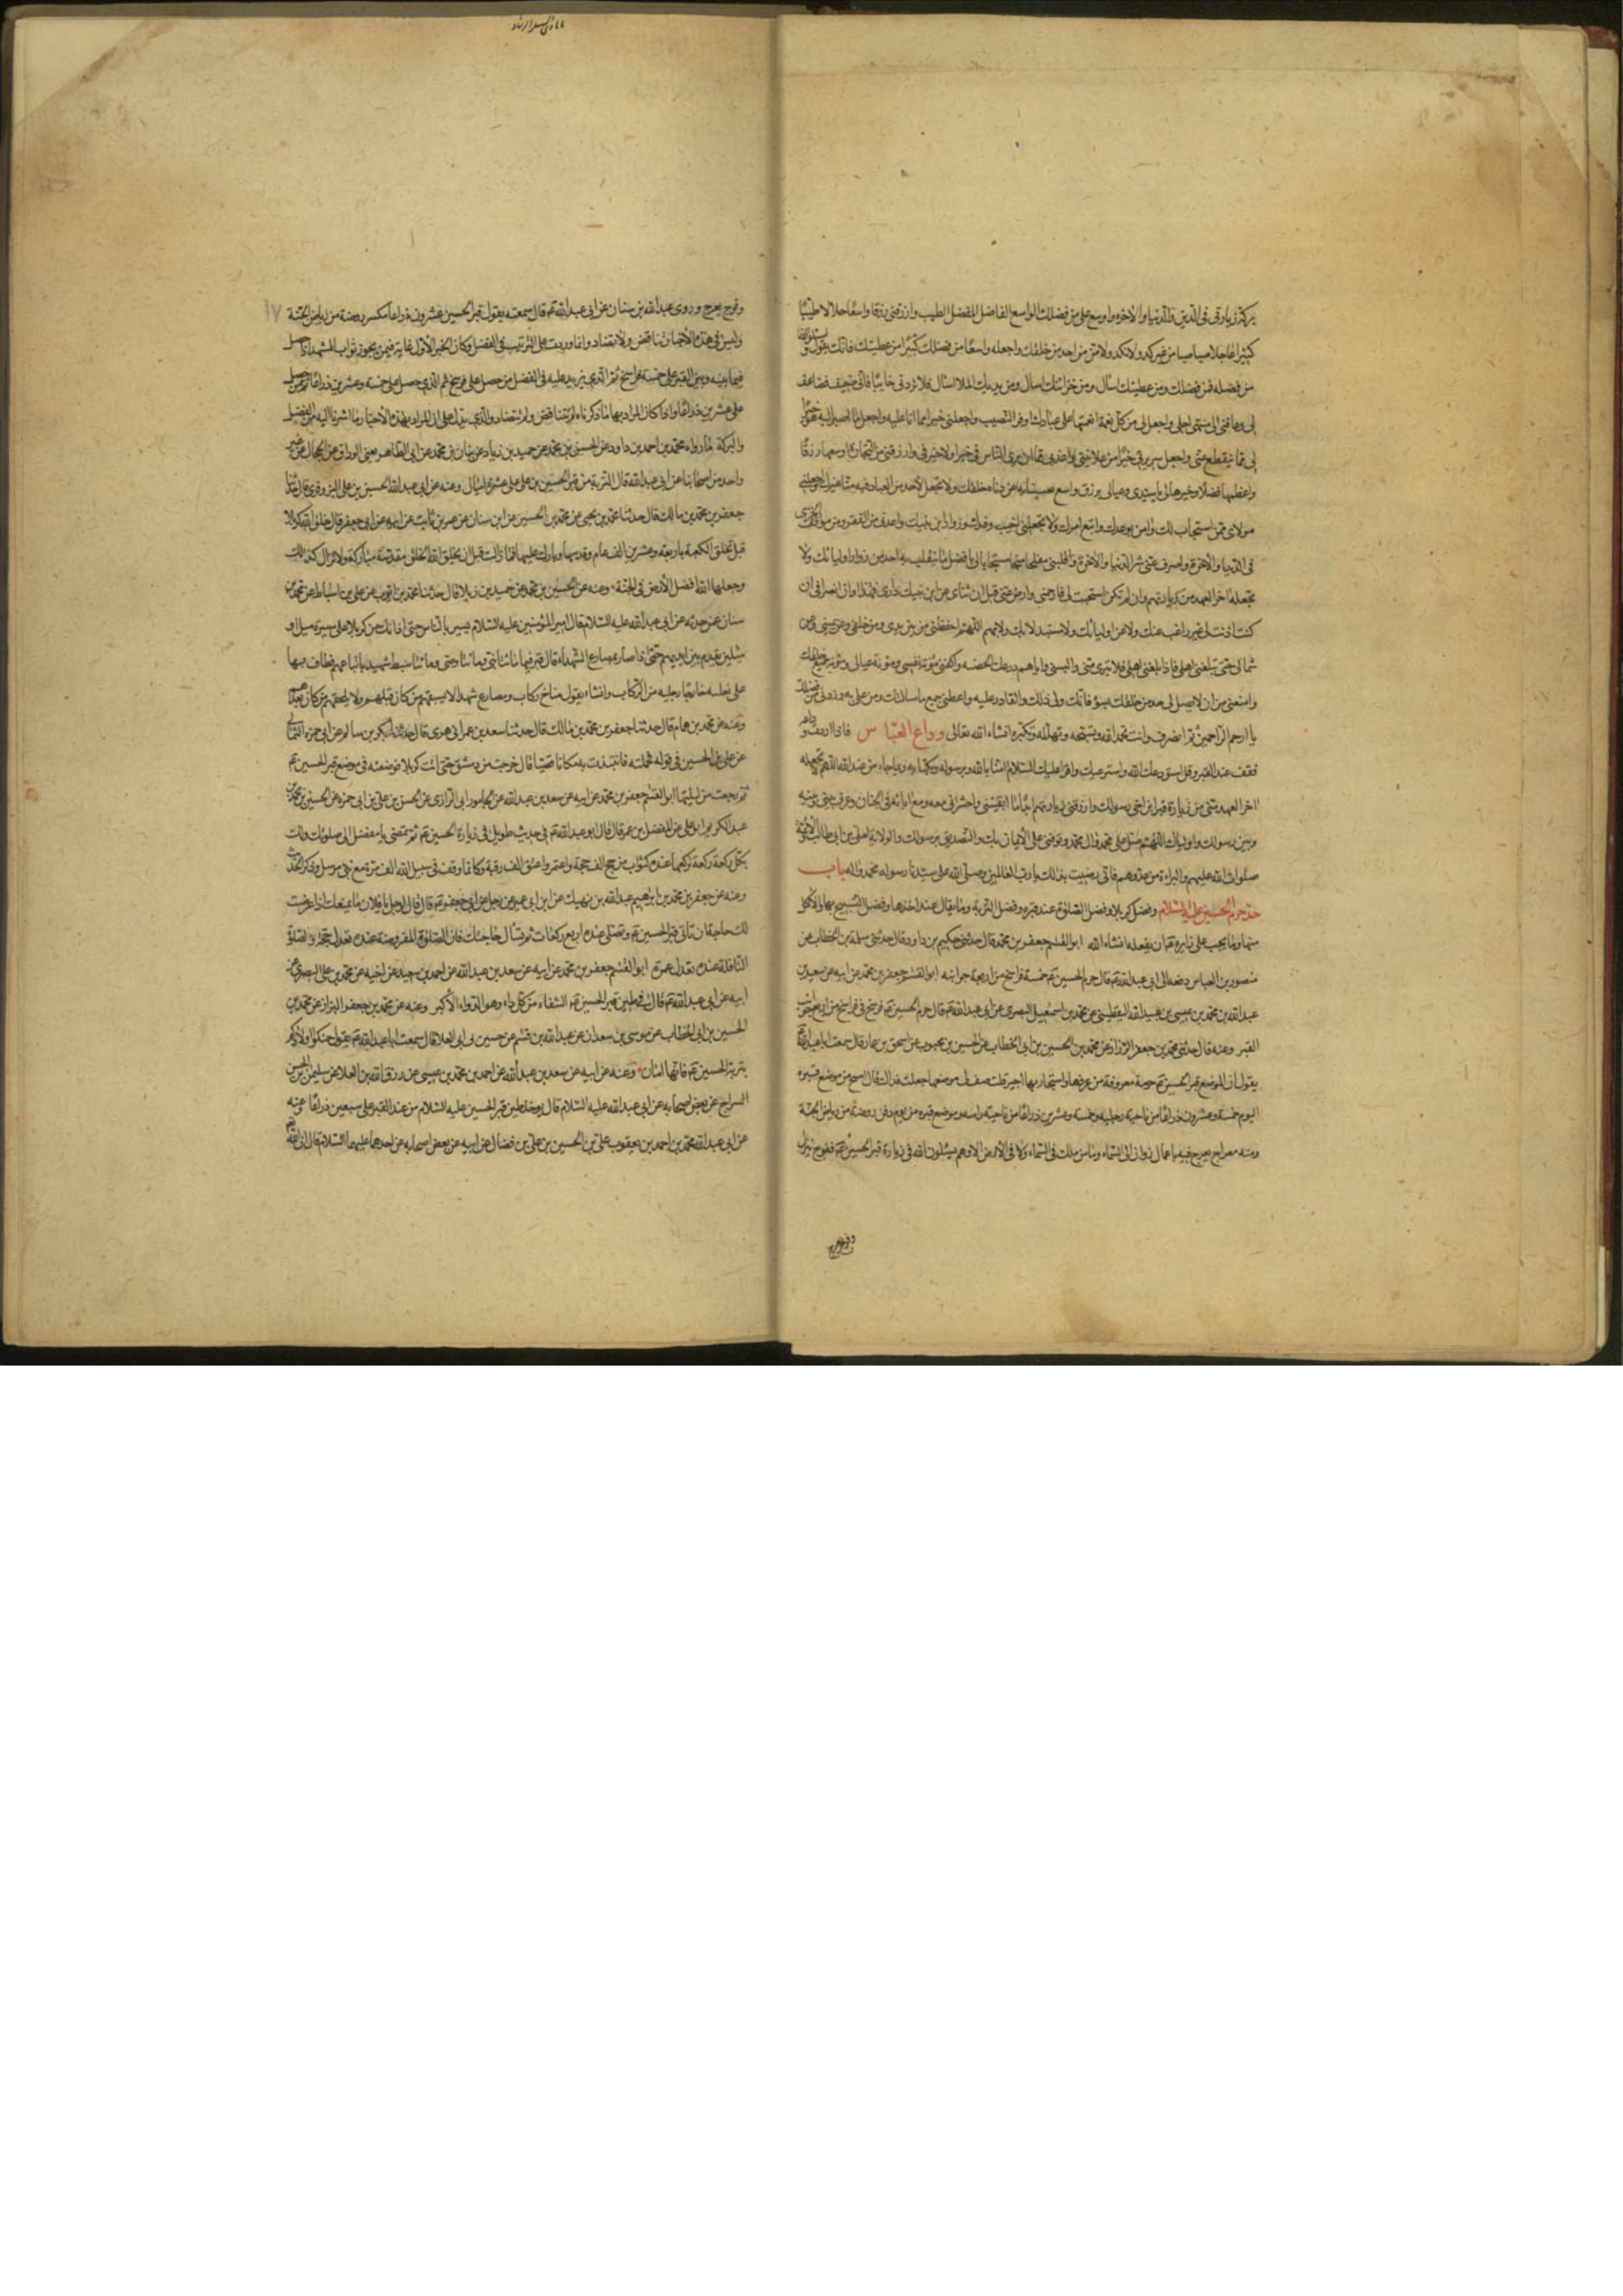 بركة زيارتي في الدين والدنيا والاخرة واوسع على من فضلك الواسع الفاضل المفضل الطيب وارزقني رزقا واسعا حلالا طيبا
كثيرا عاجلا صبا صبا من غير كد ولا نكد ولا من من احد من خلقك واجعله واسعا من فضلك كثيرا من عطيتك فانك تقول واسئلوا الله
من فضله فمن فضلك ومن عطيتك اسأل ومن خزائنك اسأل ومن يديك الملاء اسأل فلا تردني خائبا فاني ضعيف فضاعف
لي وعافني الى منتهى اجلي واجعل لي من كل نعمة انعمتها على عبادك اوفر النصيب واجعلني خيرا مما انا عليه واجعل ما اصير اليه خيرا
لي مما ينقطع عني واجعل سريرتي خيرا من علانيتي واعذني من ان يرى الناس في خيرا ولا خير في وارزقني من التجارة اوسعها رزقا
واعظمها فضلا وخيرها لي يا سيدي وعيالي برزق واسع تغنينا به عن دناة خلقك ولا تجعل لاحد من العباد فيه منا غيرك واجعلني
مولاي ممن استجاب لك وامن بوعدك واتبع امرك ولا تجعلني اخيب وفدك وزوار ابن نبيك واعذني من الفقر ومن مواقف الخزي
في الدنيا والاخرة واصرف عني شر الدنيا والاخرة واقلبني مفلحا منجحا مستجابا لي بافضل ما ينقلب به احد من زوار اوليائك ولا
تجعله اخر العهد من زيارتهم وان لم تكن استجبت لي فارحمني وارض عني قبل ان تنأى عن ابن نبيك داري فهذا اوان انصرافي ان
كنت اذنت لي غير راغب عنك ولا عن اوليائك ولا مستبدل بك ولا بهم اللهم احفظني من بين يدي ومن خلفي وعن يميني وعن
شمالي حتى تبلغني اهلي فاذا بلغتني اهلي فلا تبرى مني والبسني واياهم درعك الحصينة واكفني مؤنة نفسي ومؤنة عيالي ومؤنة جميع خلقك
وامنعني من ان لا يصل الى احد من خلقك بسوء فانك ولي ذلك والقادر عليه واعطني جميع ما سألتك ومن على به وزدني من فضلك
يا ارحم الراحمين ثم انصرف وانت تحمد الله وتسبحه وتهلله وتكبره انشاء الله تعالى وداع العباس فاذا اردت وداعه
فقف عند القبر وقل استودعك الله واسترعيك واقرا عليك السلام امنا بالله وبرسوله وبكتابه وبما جاء من عند الله اللهم لا تجعله
اخر العهد مني من زيارة قبر ابن اخي رسولك وارزقني زيارتهم ابدا ما ابقيتني واحشرني معه ومع ابائه في الجنان وعرف بيني وبينه
وبين رسولك واوليائك اللهم صل على محمد وال محمد وتوفني على الايمان بك والتصديق برسولك والولاية لعلي بن ابي طالب والائمة
صلوات الله عليهم والبراءة من عدوهم فاني رضيت بذلك يا رب العالمين وصلى الله على سيدنا رسوله محمد واله باب
حد حرم الحسين عليه السلام وفضل كربلا وفضل الصلوة عند قبره وفضل التربة وما يقال عند اخذها وفضل التسبيح بها والاكل
منها وما يجب على زايره ان يفعله انشاء الله ابو القسم جعفر بن محمد قال حدثني حكيم بن داود قال حدثني سلمة بن الخطاب عن
منصور بن العباس رفعه الى ابي عبد الله قال حرم الحسين خمسة فراسخ من اربعة جوانبه ابو القسم جعفر بن محمد عن ابيه عن سعد بن
عبد الله عن محمد بن عيسى بن عبيد الله اليقطيني عن محمد بن اسمعيل البصري عن ابي عبد الله قال حرم الحسين فرسخ في فراسخ من اربع جوانب
القبر وعنه قال حدثني محمد بن جعفر الرزاز عن محمد بن الحسين بن ابي الخطاب عن الحسين بن محبوب عن اسحق بن عمار قال سمعت ابا عبد الله
يقول ان لموضع قبر الحسين حرمة معروفة من عرفها واستجار بها اجير قلت صف لي موضعها جعلت فداك قال امسح من موضع قبره
اليوم خمسة وعشرون ذراعا من ناحية رجليه وخمسة وعشرين ذراعا من ناحية راسه وموضع قبره من يوم دفن روضة من رياض الجنة
ومنه معراج يعرج فيه باعمال زواره الى السماء وما من ملك في السماء ولا في الارض الا وهم يسئلون الله في زيارة قبر الحسين ففوج ينزل
وفوج يعرج
وفوج يعرج وروى عبد الله بن سنان عن ابي عبد الله قال سمعته يقول قبر الحسين عشرون ذراعا مكسر روضة من رياض الجنة
وليس في هذه الاخبار تناقض ولا تضاد وانما وردت على الترتيب في الفضل وكان الخبر الاول غاية فيمن يحوز ثواب المشهد اذا حصل
فيما بينه وبين القبر على خمسة فراسخ ثم الذي يزيد عليه في الفضل من حصل على فرسخ ثم الذي حصل على خمسة وعشرين ذراعا ثم من حصل
على عشرين ذراعا واذا كان المراد بها ما ذكرناه لم تتناقض ولم تتضاد والذي يدل على ان المراد بهذه الاخبار ما اشرنا اليه من الفضل
والبركة ما رواه محمد بن احمد بن داود عن الحسن بن محمد عن حميد بن زياد عن بنان بن محمد عن ابي الطاهر يعني الوراق عن الحجال عن غير
واحد من اصحابنا عن ابي عبد الله قال التربة من قبر الحسين بن علي على عشرة اميال وعنه عن ابي عبد الله الحسين بن علي البزوفري قال حدثنا
جعفر بن محمد بن مالك قال حدثنا محمد بن يحيى عن محمد بن الحسين عن ابن سنان عن عمر بن ثابت عن ابيه عن ابي جعفر قال خلق الله كربلا
قبل ان يخلق الكعبة باربعة وعشرين الف عام وقدسها وبارك عليها فما زالت قبل ان يخلق الله الخلق مقدسة مباركة ولا تزال كذلك
وجعلها الله افضل الارض في الجنة وعنه عن الحسين بن محمد عن حميد بن زياد قال حدثنا محمد بن ايوب عن علي بن اسباط عن محمد بن
سنان عمن حدثه عن ابي عبد الله عليه السلام قال امير المؤمنين عليه السلام يسير بالناس حتى اذا كان من كربلا على مسيرة ميل او
ميلين تقدم بين ايديهم حتى اذا صار بمصارع الشهداء قال قبر فيها مائتا نبي ومائتا وصي ومائتا سبط شهيد باتباعهم فطاف بها
على بغلته خارجا رجليه من الركاب وانشاء يقول مناخ ركاب ومصارع شهداء لا يسبقهم من كان قبلهم ولا يلحقهم من كان بعدهم
وعنه عن محمد بن همام قال حدثنا جعفر بن محمد بن مالك قال حدثنا سعد بن عمر الزهري قال حدثنا بكر بن سالم عن ابي حمزة الثمالي
عن علي بن الحسين في قوله فحملته فانتبذت به مكانا قصيا قال خرجت من دمشق حتى اتت كربلا فوضعته في موضع قبر الحسين
ثم رجعت من ليلتها ابو القسم جعفر بن محمد عن ابيه عن سعد بن عبد الله عن الجاموراني الرازي عن الحسن بن علي بن ابي حمزة عن الحسين بن محمد بن
عبد الكريم ابو علي عن المفضل بن عمر قال قال ابو عبد الله في حديث طويل في زيارة الحسين ثم تمضي يا مفضل الى صلوتك ولك
بكل ركعة ركعتها عنده كثواب من حج الف حجة واعتمر واعتق الف رقبة وكانما وقف في سبيل الله الف مرة مع نبي مرسل وذكر الحديث
وعنه عن جعفر بن محمد بن ابراهيم عبد الله بن نهيك عن ابن ابي عمير عن رجل عن ابي جعفر قال قال لرجل يا فلان ما يمنعك اذا عرضت
لك حاجة ان تاتي قبر الحسين وتصلي عنده اربع ركعات ثم تسأل حاجتك فان الصلوة المفروضة عنده تعدل حجة والصلوة
النافلة عنده تعدل عمرة ابو القسم جعفر بن محمد عن ابيه عن سعد بن عبد الله عن احمد بن سعيد عن ابيه عن محمد بن علي البصري عن
ابيه عن ابي عبد الله قال في طين قبر الحسين الشفاء من كل داء وهو الدواء الاكبر وعنه عن محمد بن جعفر الرزاز عن محمد بن
الحسين بن ابي الخطاب عن موسى بن سعدان عن عبد الله بن قسم عن حسين بن ابي العلا قال سمعت ابا عبد الله يقول حنكوا اولادكم
بتربة الحسين فانها امان وعنه عن ابيه عن سعد بن عبد الله عن احمد بن محمد بن عيسى عن رزق الله بن العلا عن سليمن بن عمر
السراج عن بعض اصحابه عن ابي عبد الله عليه السلام قال يؤخذ طين قبر الحسين عليه السلام من عند القبر على سبعين ذراعا وعنه
عن ابي عبد الله محمد بن احمد بن يعقوب علي بن الحسين بن علي بن فضال عن ابيه عن بعض اصحابه عن احدهما عليهما السلام قال ان الله